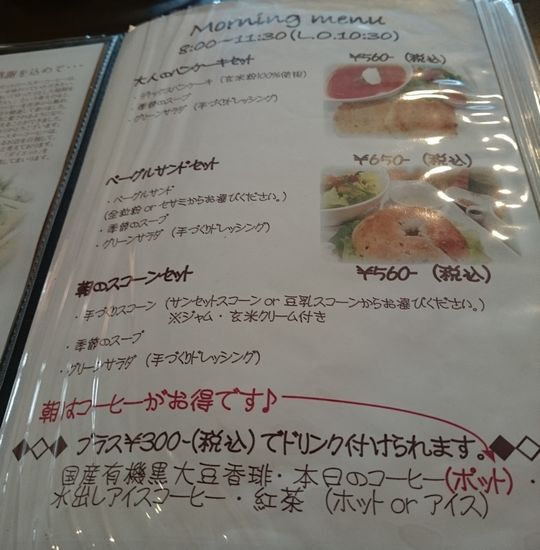 Morning menu
8:00~11:30(L.O.10:30)
大人のパンケーキセット
¥560-(税込)
・季節のスープ
・グリーンサラダ(手づくりドレッシング)
ベーグルサンドセット
¥650-(税込)
・ベーグルサンド
(全粒粉 or セサミからお選びください。)
・季節のスープ
・グリーンサラダ (手づくりドレッシング)
朝のスコーンセット
¥560-(税込)
・手づくりスコーン (サンセットスコーン or 豆乳スコーンからお選びください。)
※ジャム・玄米クリーム付き
・季節のスープ
・グリーンサラダ (手づくりドレッシング)
朝はコーヒーがお得です♪
プラス¥300-(税込)でドリンク付けられます。
国産有機黒大豆香琲・本日のコーヒー(ポット)・
水出しアイスコーヒー・紅茶 (ホット or アイス)